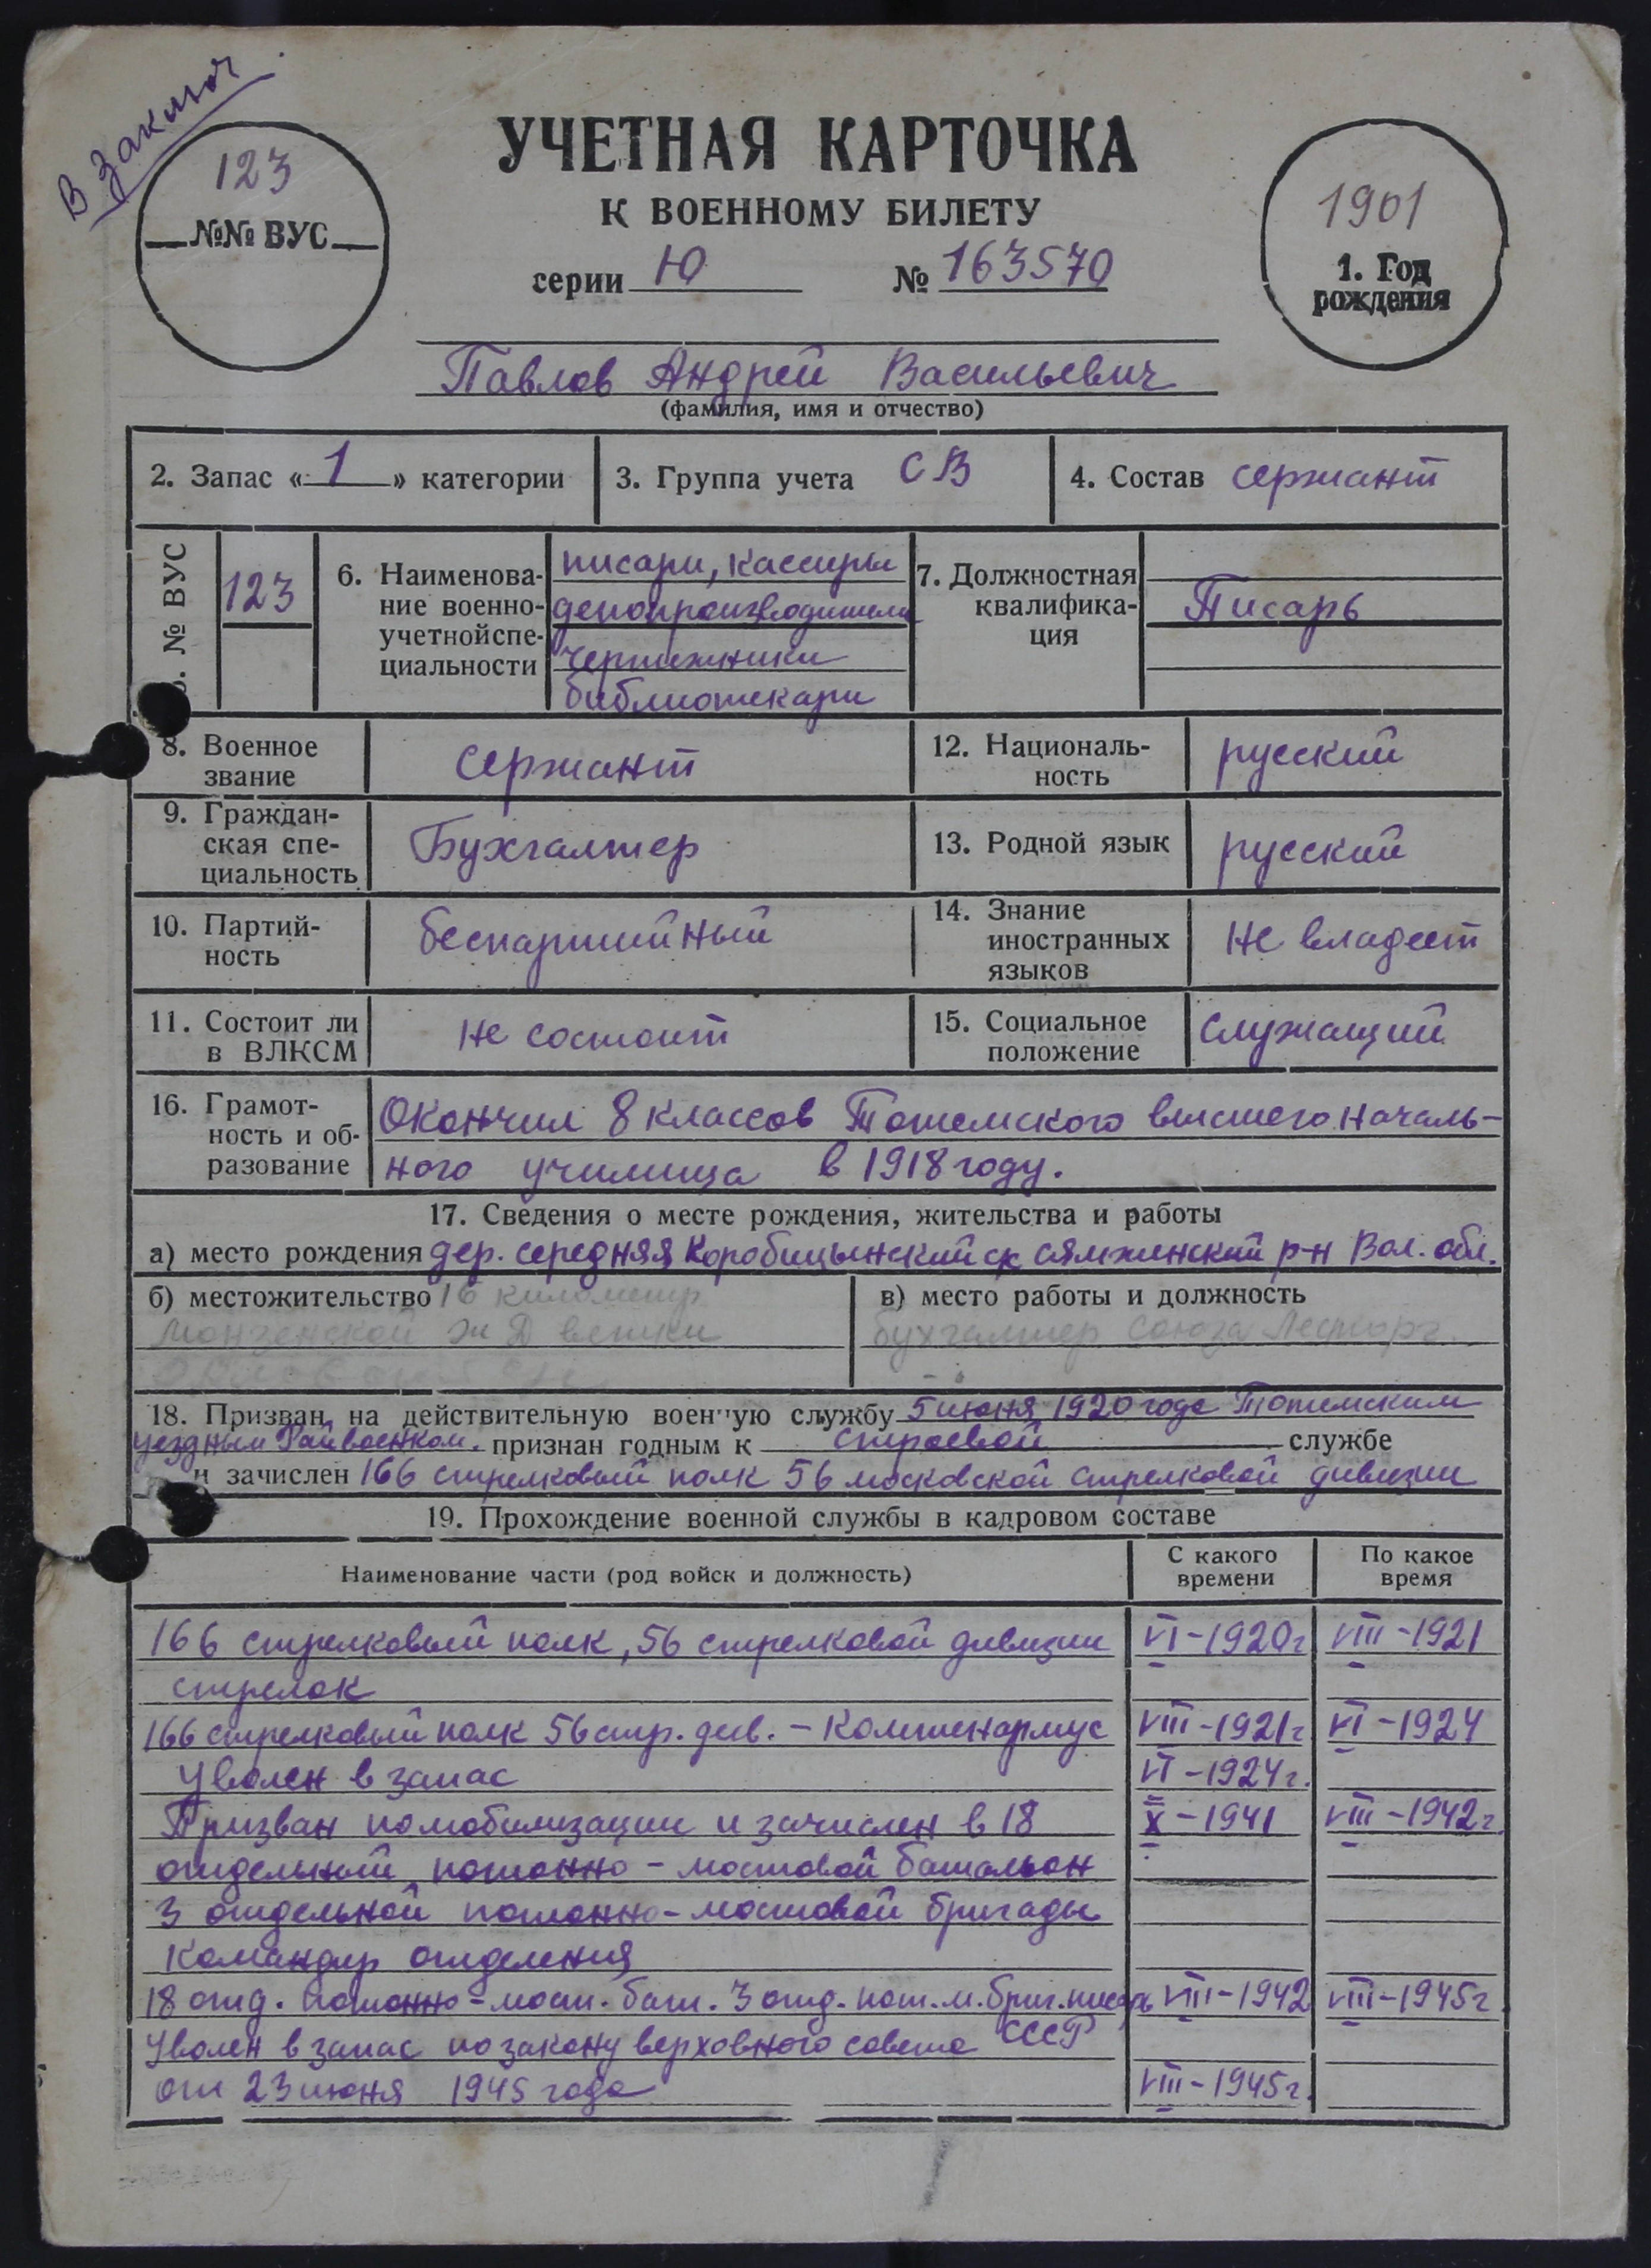 В Заключ
УЧЕТНАЯ КАРТОЧКА
К ВОЕННОМУ БИЛЕТУ
серии Ю № 163570
123
№№ ВУС
1901
1. Год
рождения
Павлов Андрей Васильевич
(фамилия, имя и отчество)
2. Запас « 1 » категории
3. Группа учета СВ
4. Состав сержант
№ ВУС
123
6. Наименова-
ние военно-
учетнойспе-
циальности
писари, кассиры
делопроизводители
чертежники
библиотекари
7. Должностная
квалифика-
ция
Писарь
8. Военное
звание
сержант
12. Националь-
ность
русский
9. Граждан-
ская спе-
циальность
Бухгалтер
13. Родной язык
русский
10. Партий-
ность
беспартийный
14. Знание
иностранных
языков
не владеет
11. Состоит ли
в ВЛКСМ
не состоит
15. Социальное
положение
служащий
16. Грамот-
ность и об-
разование
Окончил 8 классов Тотемского высшего началь-
ного училища в 1918 году.
17. Сведения о месте рождения, жительства и работы
а) место рождения дер. средняя Коробицынский ск сямженский р-н Вол. обл.
б) местожительство 16 километр
Монзенской ж Д ветки
в) место работы и должность
бухгалтер Союза Леспорг.
18. Призван на действительную военную службу 5 июня 1920 года Тотемским
уездным Райвоенком. признан годным к строевой службе
и зачислен 166 стрелковый полк 56 московской стрелковой дивизии
19. Прохождение военной службы в кадровом составе
Наименование части (род войск и должность)
С какого
времени
По какое
время
166 стрелковый полк, 56 стрелковой дивизии VI-1920г VIII-1921
стрелок
166 стрелковый полк 56 стр. див. - Каптенармус VIII-1921г VI-1924
Уволен в запас VI-1924г.
Призван помобилизации и зачислен в 18 X-1941 VIII-1942г.
отдельный понтонно-мостовой батальон
3 отдельной понтонно-мостовой бригады
Командир отделения
18 отд. понтонно-мост. бат. 3 отд. пот.м.бриг.писарь VIII-1942 VIII-1945г
Уволен в запас по закону верховного совета СССР
от 23 июня 1945 года VIII-1945г.